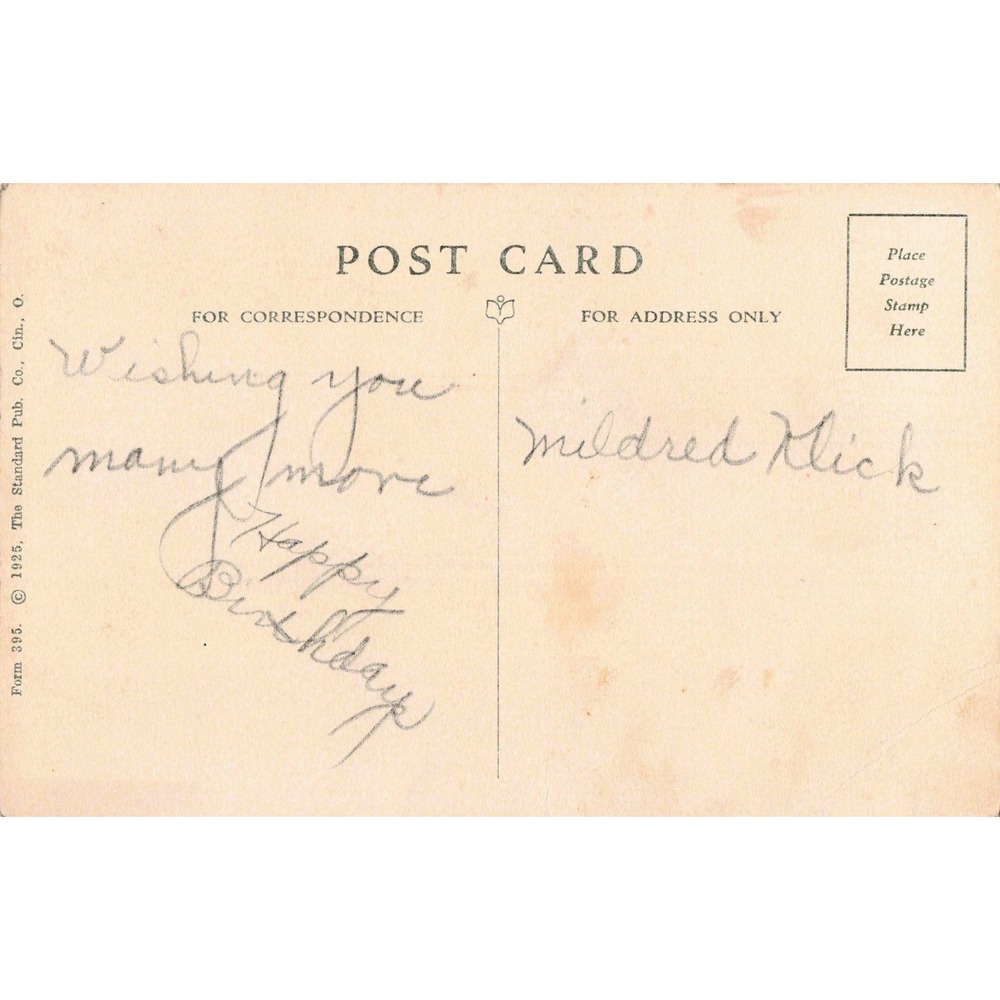 POST CARD
FOR CORRESPONDENCE
FOR ADDRESS ONLY
Place
Postage
Stamp
Here
Wishing you
many more
Happy
Birthday
Mildred Klick
Form 395. © 1925, The Standard Pub. Co., Cin., O.